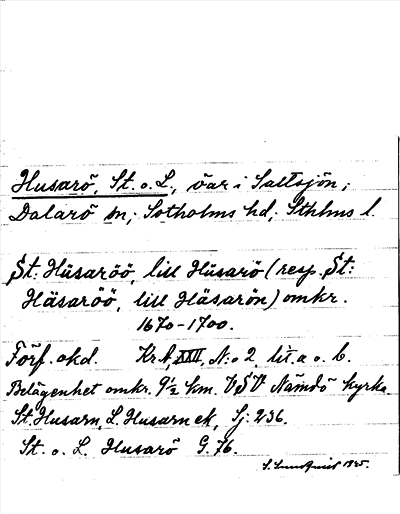 Husarö, St. o. L., öar i Saltsjön;
Dalarö sn; Sotholms hd; Sthlms l.
St: Hüsaröö, lill Hüsarö (resp. St:
Häsaröö, lill Häsarön) omkr.
1670-1700.
Förf. okd. Kr.A, XXII, N:o 2 lit. a o. b.
Belägenhet omkr. 9½ km. VSV Nämdö kyrka
St. Husarn, L. Husarn ek, Sj: 236.
St. o. L. Husarö G. 76.
S. Lundqvist 1925.